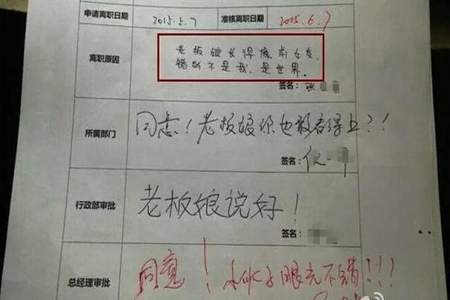 申请离职日期 2015.5.7 准核离职日期 2015.6.7
离职原因
老板娘长得
错的不是我,是世界。
签名:
所属部门
同志!老板娘你也敢看得上?!
签名:
行政部审批
老板娘说好!
签名:
总经理审批
同意! 小伙子眼光不错!!!